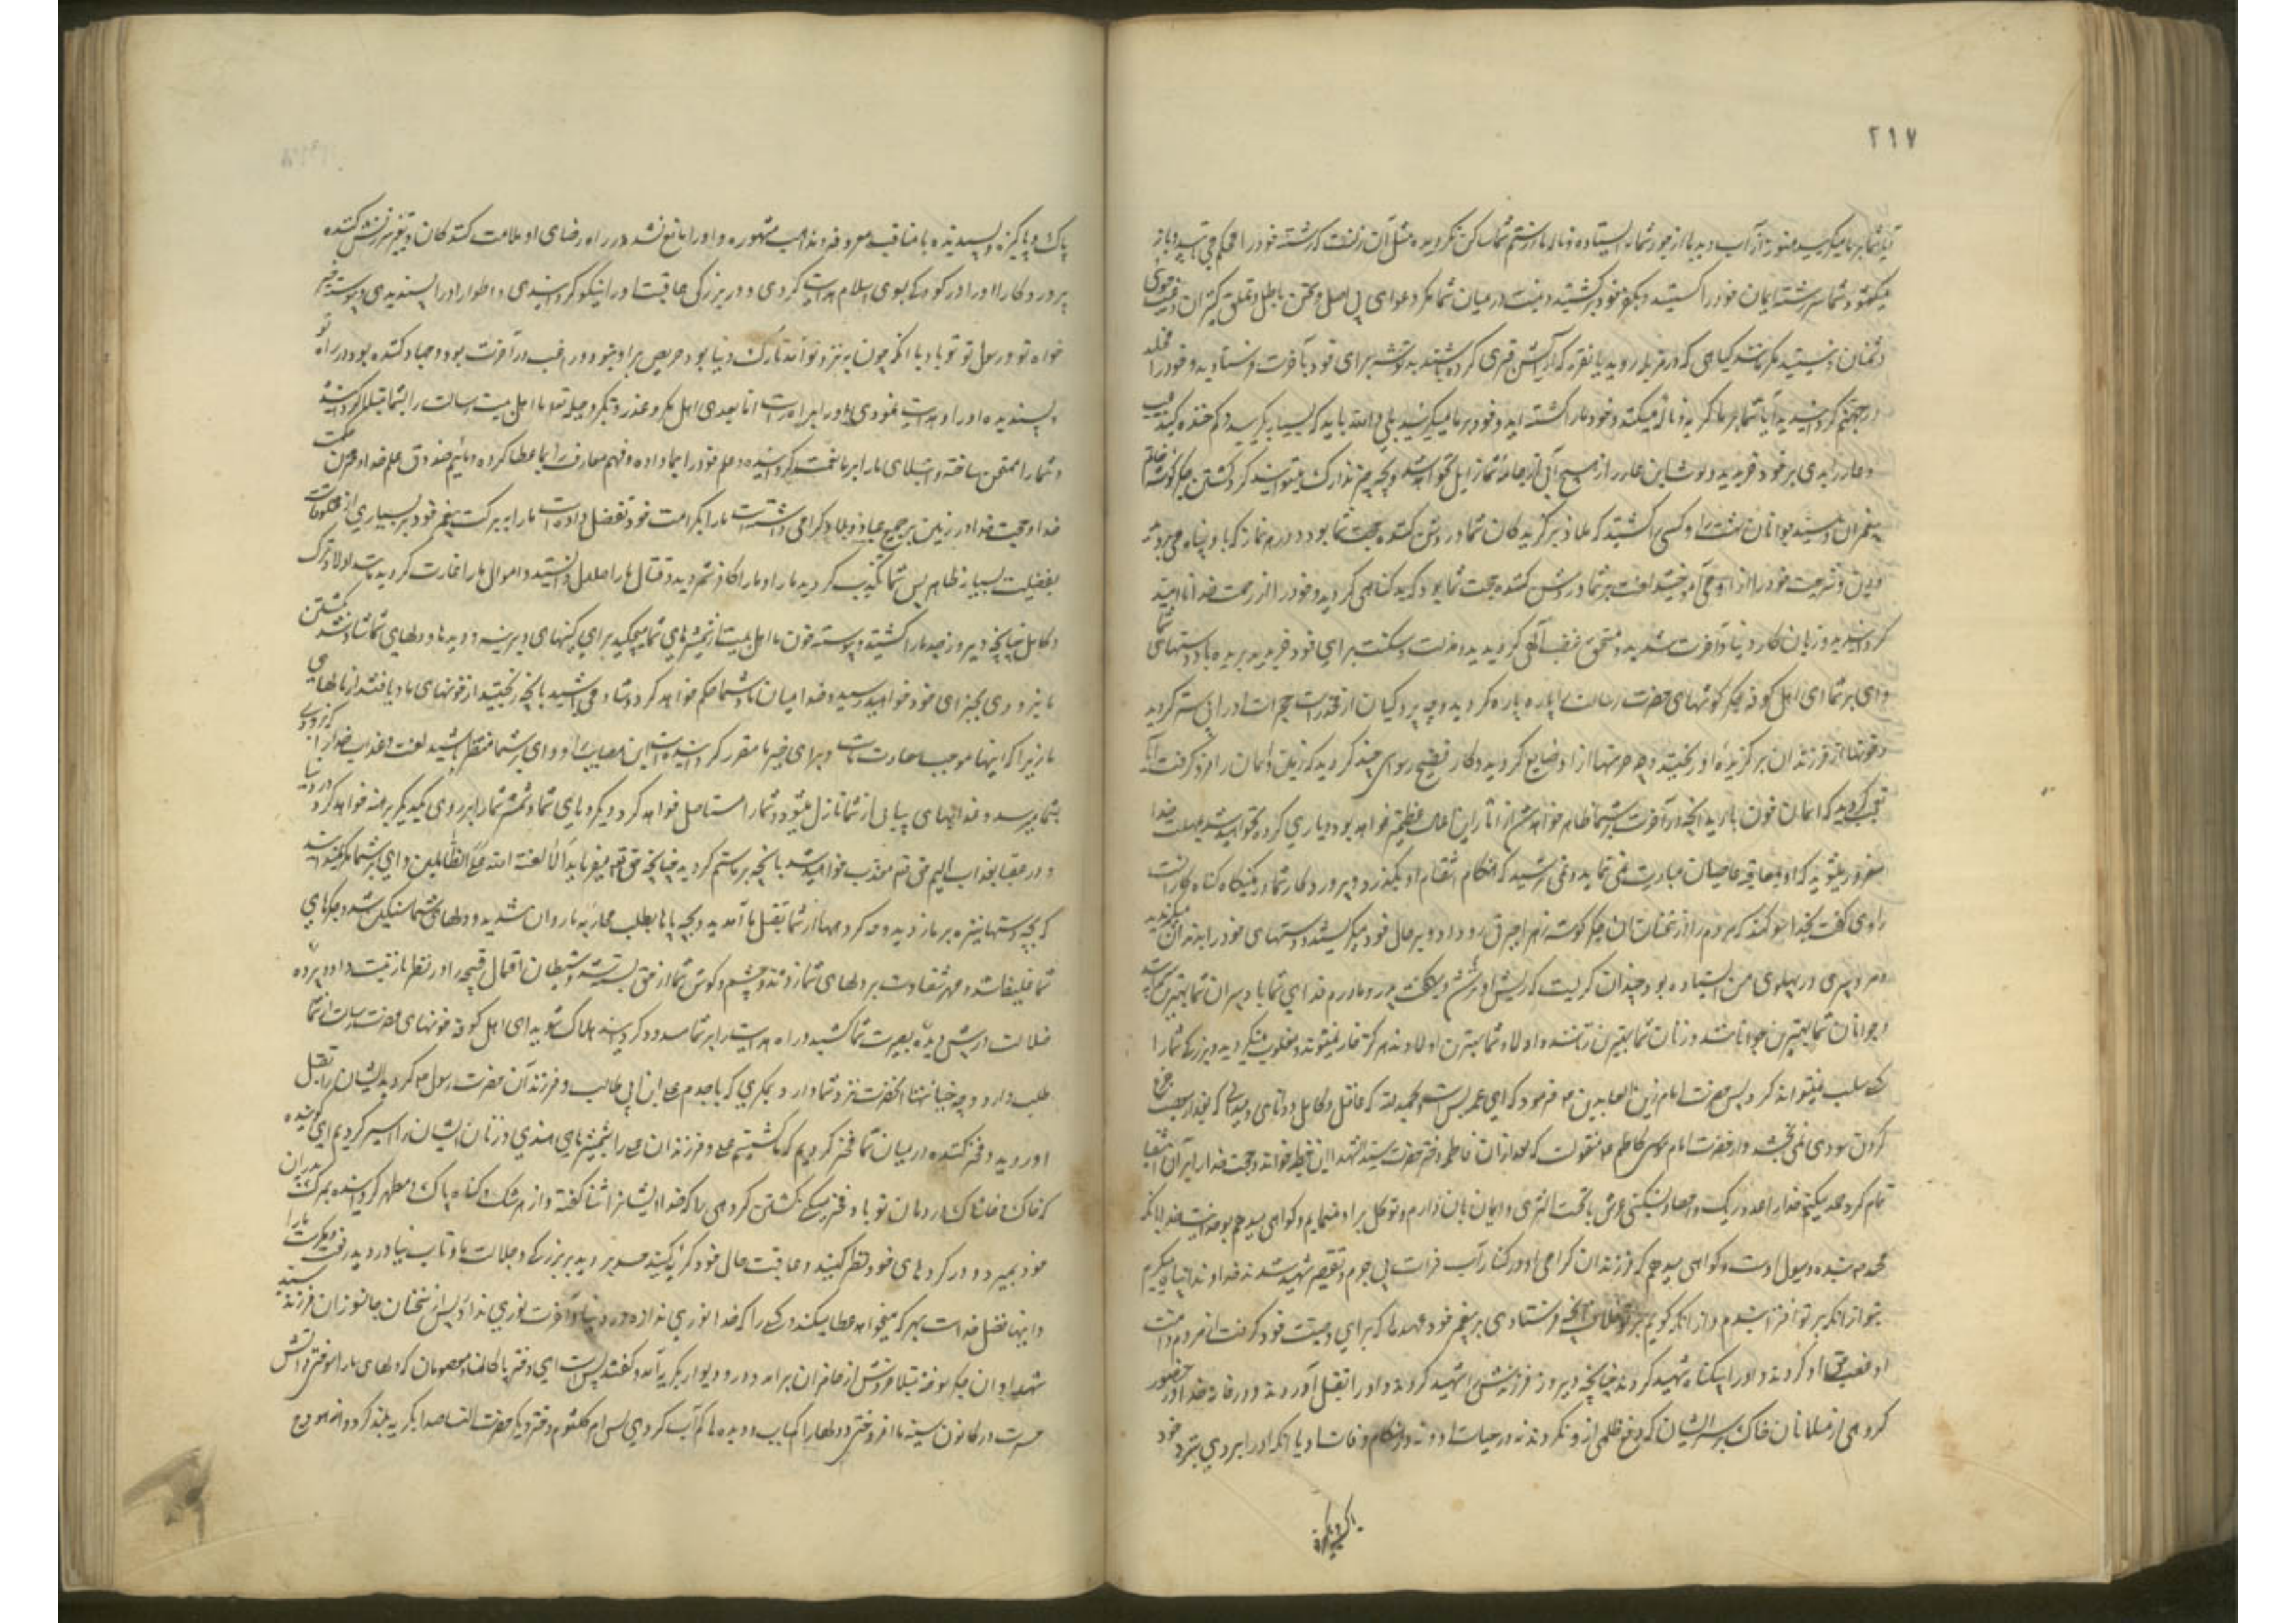 ۲۱۷
آیا شما بر ما میگریید هنوز آب دیده ما از جور شما نه ایستاده و ناله ما از ستم شما ساکن نگردیده مثل آن زنست که رشته خود را محکم می تابید و باز
میکشود و شما رشته ایمان خود را کسستید و بکفر خود برگشتید و نیست در میان شما مگر دعوای بی اصل و سخن باطل و تملق کنیزان و عیب جوی
دشمنان و نیستید مگر مانند کیاهی که در مزبله روید یا نقره که آرایش قبری کرده باشند بد توشه برای خود بآخرت فرستادید و خود را مخلد
در جهنم گردانیدید آیا شما بر ما گریه و ناله میکنید و خود ما را کشته اید و خود بر ما میگریید بلی والله باید که بسیار بگریید و کم خنده کنید عیب
و عار ابدی بر خود خریدید و لوث این عار را از هیچ آبی از جامه شما زایل نخواهد شد و بچه چیز تدارک میتوانید کرد کشتن جگر گوشه خاتم
پیغمران و سید جوانان بهشت را و کسی را کشتید که ملاذ برگزیدگان شما و روشن کننده حجت شما بود و در هر نازله باو پناه می بردید
و دین و شریعت خود را از او می آموختید لعنت بر شما و روشن کننده حجت شما بود بد گناهی کردید و خود را از رحمت خدا ناامید
گردانیدید و زیان کار دنیا و آخرت شدید و مستحق غضب الهی گردیدید و مذلت و مسکنت برای خود خریدید بریده باد دستهای شما
وای بر شما ای اهل کوفه چه جگر گوشهای حضرت رسالت را پاره پاره کردید و چه پردگیان از مخدرات حجرات او را بی ستر کردید
و چه خونها از فرزندان برگزیده او ریختید و چه حرمتها از او ضایع کردید و کار قبیح رسوای چند کردید که زمین و آسمان را فرو گرفت آیا
تعجب کردید که آسمان خون بارید آنچه در آخرت بر شما ظاهر خواهد شد از آثار این اعمال عظیم تر خواهد بود و یاری کرده نخواهید شد بمهلت خدا
مغرور میشوید که او بمعاقبه عاصیان مبادرت نمی نماید و نمی ترسد که هنگام انتقام او بگذرد و پروردگار شما در کمینگاه گناه کارانست
راوی گفت بخدا سوگند که مردم را از سخنان آن جگر گوشه زهرا حیرتی رو داد و بر حال خود میگریستند و دستهای خود را بدندان میگزیدند
مرد پیری در پهلوی من ایستاده بود چندان گریست که ریش او تر شد و میگفت پدر و مادرم فدای شما باد پیران شما بهترین پیرانند
و جوانان شما بهترین جوانانند و زنان شما بهترین زنانند و اولاد شما بهترین اولادند هرگز خار نمیشوند و مغلوب نمیگردید و بزرگی شما را
کسی سلب نمیتواند کرد پس حضرت امام زین العابدین ع فرمود که ای عمه بس است و بحمدلله که عاقل و کامل و دانای و میدانی که بعد از مصیبت جزع
کردن سودی نمی بخشد و از حضرت امام موسی کاظم ع منقولست که بعد از آن فاطمه دختر حضرت سید الشهدا این خطبه خواند و حجت خدا را بر آن اشقیا
تمام کرد حمد میکنم خدا را بعدد ریگ و حصا و سنگینی عرش تا تحت الثری و ایمان بآن دارم و توکل بر او مینمایم و گواهی میدهم بوحدانیت خدا و بآنکه
محمد ص بنده و رسول اوست و گواهی میدهم که فرزندان گرامی او در کنار آب فرات بی جرم و تقصیر شهید شدند خداوندا پناه میگیرم
بتو از آنکه بر تو افترا بندم و از آنکه گویم بر تو خلاف آنچه فرستادی بر پیغمبر خود عهدها که برای وصیت خود گرفت از مردم و امت
او غصب حق او کردند و او را بیگناه شهید کردند چنانچه دیروز فرزندش را شهید کردند و او را بقتل آوردند و در خانه خدا و در حضور
گروهی از مسلمانان خاک بر سر ایشان که دفع ظلمی از و نکردند نه در حیات او و نه در هنگام وفات او تا آنکه او را بردی بنزد خود
پاک و پاکیزه و پسندیده با مناقب معروفه و مذاهب مشهوره و او را مانع نشد در راه رضای او ملامت کننده کان و تعییر سرزنش کننده
پروردگارا او را در کودکی بسوی اسلام هدایت کردی و در بزرگی عاقبت او را نیکو گردانیدی و اطوار او را پسندیدی و پیوسته خیر
خواه تو و رسول تو بود تا آنکه چون بنزد تو آمد تارک دنیا بود و حریص بر او نبود و راغب در آخرت بود و جهاد کننده بود در راه تو
پسندیده او را و هدایت نمودی او را براه راست اما بعد ای اهل مکر و غدر و تکبر و حیله خدا ما اهل بیت رسالت را بشما مبتلا گردانیده
و شما را بما ممتحن ساخته و ابتلای ما را بر ما نعمت گردانیده و علم خود را بما داده و فهم معارف را بما عطا کرده و مائیم صندوق علم خدا و مخزن حکمت
خدا و حجت خدا در زمین بر جمیع عباد و بلاد و گرامی داشته است ما را بکرامت خود و تفضیل داده است ما را به برکت پیغمبر خود بر بسیاری از مخلوقات
بفضیلت بسیار ظاهر پس شما تکذیب کردید ما را و ما را کافر شمردید و قتال ما را حلال دانستید و اموال ما را غارت کردید مانند اولاد ترک
و کابل چنانچه دیروز جد ما را کشتید و پیوسته خون ما اهل بیت از شمشیرهای شما میچکید برای کینهای دیرینه و دیدها و دلهای شما شاد شد بکشتن
ما بزودی بجزای خود خواهید رسید و خدا میان ما و شما حکم خواهد کرد و شاد مباشید بآنچه ریختید از خونهای ما و یافتید از مالهای
ما زیرا که اینها موجب سعادت ماست و برای خیر ما مقرر گردانیده است این مصایب را و وای بر شما منتظر باشید لعنت و عذاب خدا را که بزودی
بشما میرسد و عذابهای پیاپی از آسمان نازل میشود و شما را مستاصل خواهد کرد و بکردهای شما و شمشیر شما را بر روی یکدیگر برهنه خواهد کرد در دنیا
و در عقبا بعذاب الیم معذب خواهید شد بآنچه بر ما ستم کردید چنانچه حق تع میفرماید ألا لعنة الله علی الظالمین وای بر شما مگر نمیدانید
که بچه دستها نیزه بر ما زدید و چه گروهها از شما بقتل ما آمدید و بچه پاها بطلب محاربه ما روان شدید و دلهای شما سنگین شد و جگرهای
شما غلیظ شد و مهر شقاوت بر دلهای شما زدند و چشم و گوش شما از حق بسته شد و شیطان اعمال قبیحه را در نظرها زینت داد و پرده
ضلالت در پیش دیده بصیرت شما کشید و راه هدایت را بر شما مسدود گردانید هلاک شوید ای اهل کوفه چه خونهای حضرت رسالت از شما
طلب دارد و چه خیانتها آنحضرت نزد شما دارد بمکری که با جدم علی ابن ابی طالب و فرزندان حضرت رسول ص کردید و ایشان را بقتل
آوردید و فخر کننده در میان شما فخر کردیم که ما کشتیم علی و فرزندان علی را بشمشیرهای هندی و زنان ایشان را اسیر کردیم ای گوینده
که خاک و خاشاک در دهان تو باد فخر میکنی بکشتن گروهی را که خدا ایشانرا ثنا گفته و از هر شک و گناه پاک و مطهر گردانیده بمرگ پدران
خود بمیرید و در کردهای خود نظر کنید و عاقبت حال خود گریه کنید حسد بردید بر بزرگی و جلالت ما و تاب نیاوردید رفعت و مکرمت ما را
و اینها فضل خداست بهر که میخواهد عطا میکند و کسی را که خدا نوری نداده در دنیا و آخرت نوری ندارد پس از سخنان جانسوز آن فرزند سید
شهدا و آن جگر سوخته مبتلا خروش از حاضران برآمد و در و دیوار بگریه آمد و گفتند بس است ای دختر پاکان و معصومان که دلهای ما را سوختی و آتش
حسرت در کانون سینه ما افروختی و دلها را کباب و دیده ها را پر آب کردی پس ام کلثوم دختر دیگر حضرت النسا صدا بگریه بلند کرد و از هودج